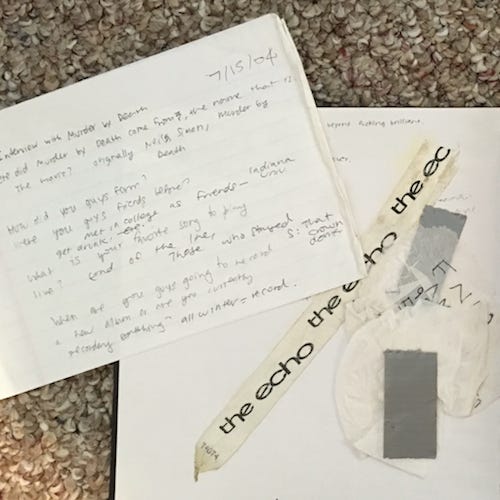 7/15/04
Interview with Murder by Death
did Murder by Death come from, the name that is
the movie? originally Neil Simon, Murder by
Death
How did you guys form? Indiana
were you guys friends before? Univ.
met in college as friends—
get drunk.
What is your favorite song to play
live? end of the line, S: That
Those who stayed crown
don't
When are you guys going to record
a new album or are you currently
recording something— all winter = record.
beyond fucking brilliant.
the echo the echo the ec